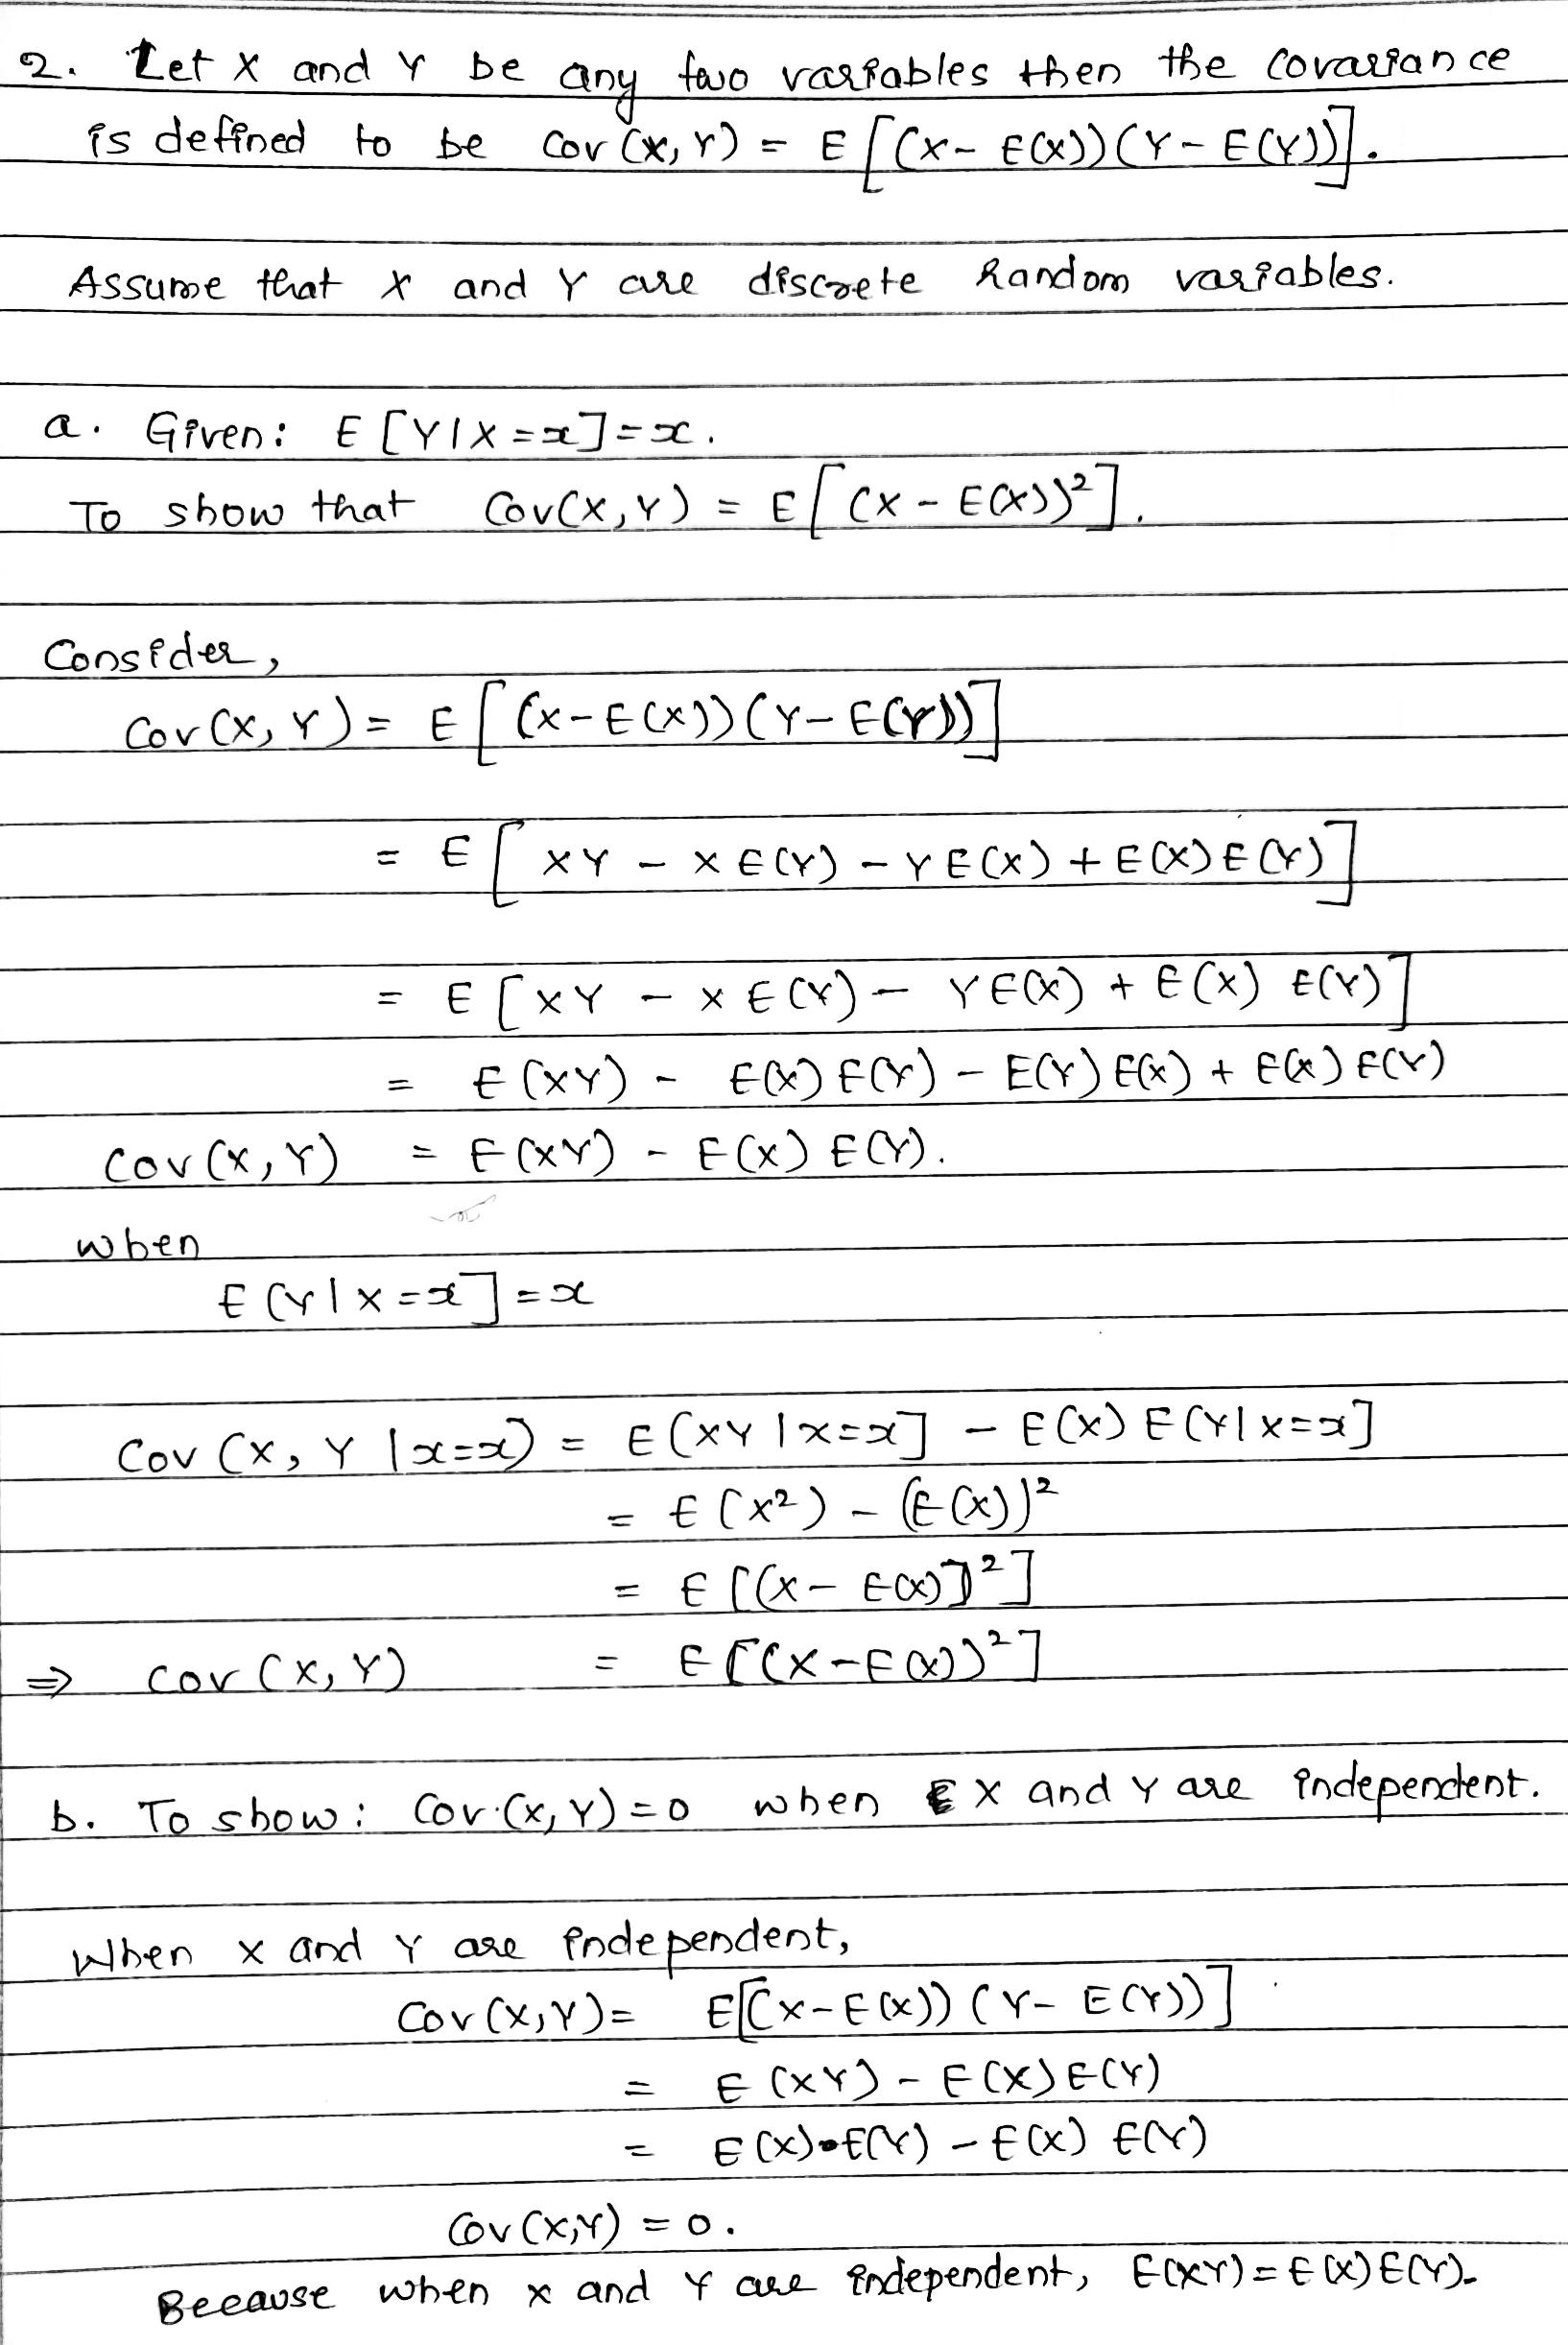 2. Let X and Y be any two variables then the covariance
is defined to be Cov(X, Y) = E[(X - E(X))(Y - E(Y))].
Assume that X and Y are discrete Random variables.
a. Given: E[Y|X=x]=x.
To show that Cov(X, Y) = E[(X - E(X))²].
Consider,
Cov(X, Y) = E[(X-E(X))(Y-E(Y))]
= E[XY - XE(Y) - YE(X) + E(X)E(Y)]
= E[XY - XE(Y) - YE(X) + E(X) E(Y)]
= E(XY) - E(X)E(Y) - E(Y)E(X) + E(X)E(Y)
Cov(X, Y) = E(XY) - E(X) E(Y).
when
E(Y|X=x]=x
Cov(X, Y |x=x) = E(XY|X=x] - E(X)E(Y|X=x]
= E(X²) - (E(X))²
= E[(X-E(X)]²]
⇒ Cov(X, Y) = E[(X-E(X))²]
b. To show: Cov.(X, Y)=0 when X and Y are independent.
When X and Y are independent,
Cov(X,Y)= E[(X-E(X))(Y-E(Y))]
= E(XY) - E(X)E(Y)
= E(X)•E(Y) - E(X) E(Y)
Cov(X,Y) = 0.
Beeause when X and Y are independent, E(XY)=E(X)E(Y).